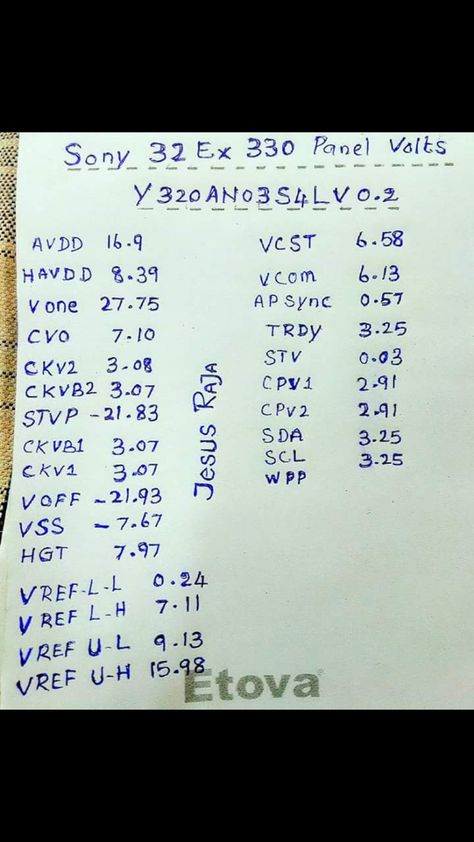 Sony 32 Ex 330 Panel Volts
Y320AN03S4LV0.2
AVDD 16.9
HAVDD 8.39
Vone 27.75
CVO 7.10
CKV2 3.08
CKVB2 3.07
STVP -21.83
CKVB1 3.07
CKV1 3.07
VOFF -21.93
VSS -7.67
HGT 7.97
VREF-L-L 0.24
VREF L-H 7.11
VREF U-L 9.13
VREF U-H 15.98
JESUS RAJA
VCST 6.58
VCOM 6.13
APSync 0.57
TRDY 3.25
STV 0.03
CPV1 2.91
CPV2 2.91
SDA 3.25
SCL 3.25
WPP
Etova